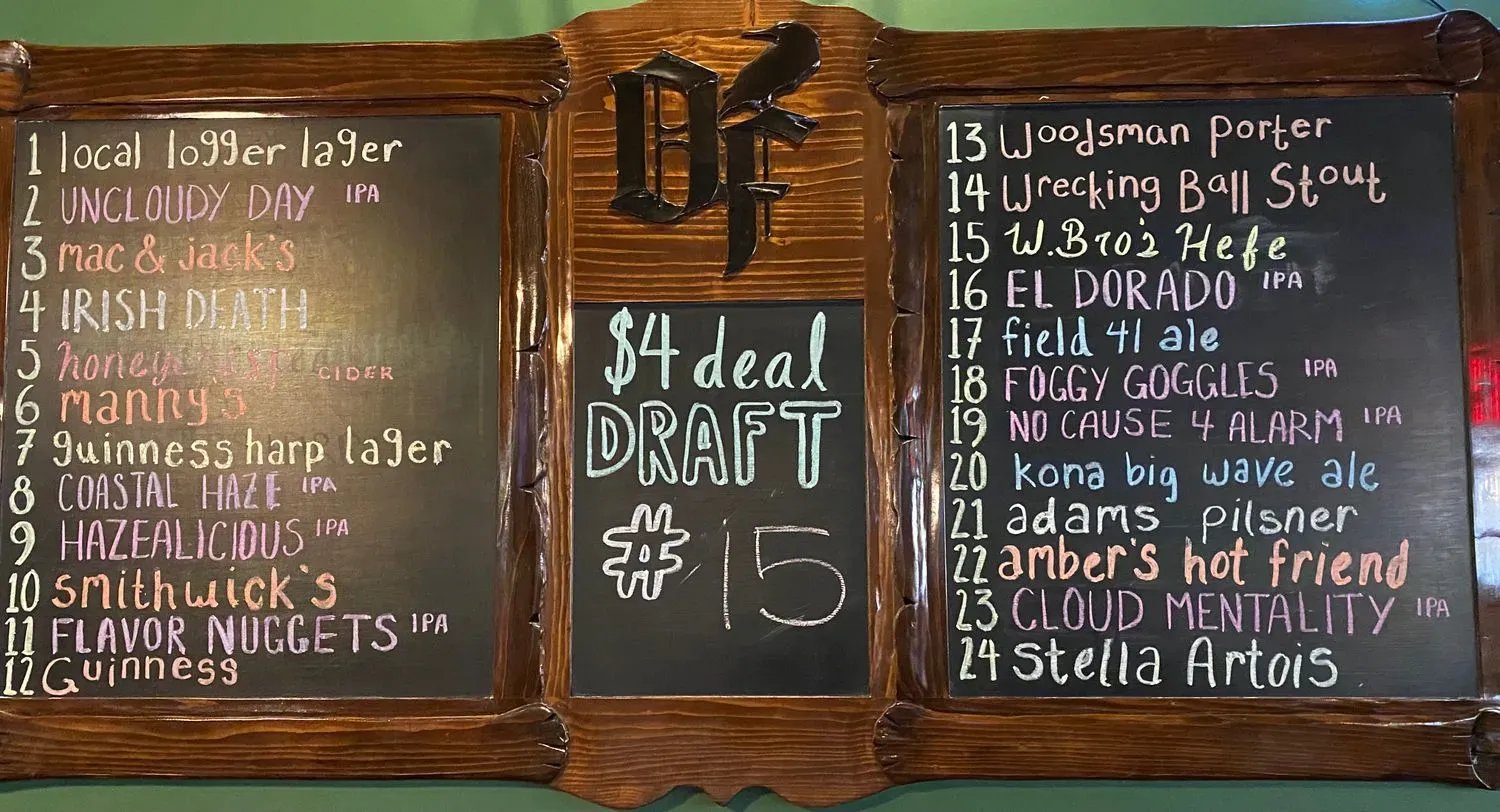 1 local logger lager
2 UNCLOUDY DAY IPA
3 mac & jack's
4 IRISH DEATH
5 honey CIDER
6 manny's
7 guinness harp lager
8 COASTAL HAZE IPA
9 HAZEALICIOUS IPA
10 smithwick's
11 FLAVOR NUGGETS IPA
12 Guinness
DF
$4 deal
DRAFT
#15
13 Woodsman Porter
14 Wrecking Ball Stout
15 W.Bro's Hefe
16 EL DORADO IPA
17 field 41 ale
18 FOGGY GOGGLES IPA
19 NO CAUSE 4 ALARM IPA
20 kona big wave ale
21 adams pilsner
22 amber's hot friend
23 CLOUD MENTALITY IPA
24 Stella Artois